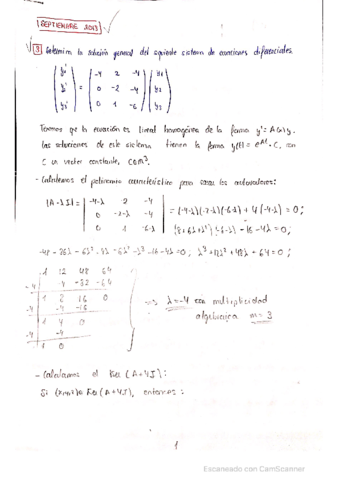 SEPTIEMBRE 2013
3 Determina la solución general del siguiente sistema de ecuaciones diferenciales.
y1' -4 2 -4 y1
y2' = 0 -2 -4 y2
y3' 0 1 -6 y3
Tenemos que la ecuación es lineal homogénea de la forma y' = A(x)y.
Las soluciones de este sistema tienen la forma y(t) = e^{At}·C, con
C un vector constante,
- Calculamos el polinomio característico para sacar los autovalores:
|A-λI| = | -4-λ 2 -4 | = (-4-λ)(-2-λ)(-6-λ) + 4(-4-λ) = 0;
0 -2-λ -4
0 1 -6-λ (8+6λ+λ²)(-6-λ) -16-4λ = 0
-48 - 36λ - 6λ² - 8λ - 6λ² - λ³ - 16 - 4λ = 0; λ³ + 12λ² + 48λ + 64 = 0;
1 12 48 64
-4 -4 -32 -64
1 8 16 0 ⇒ λ = -4 con multiplicidad
-4 -4 -16 algebraica m = 3
1 4 0
-4 -4
1 0
- Calculamos el Ker (A+4I):
Si ∈ Ker (A+4I), entonces:
1
Escaneado con CamScanner